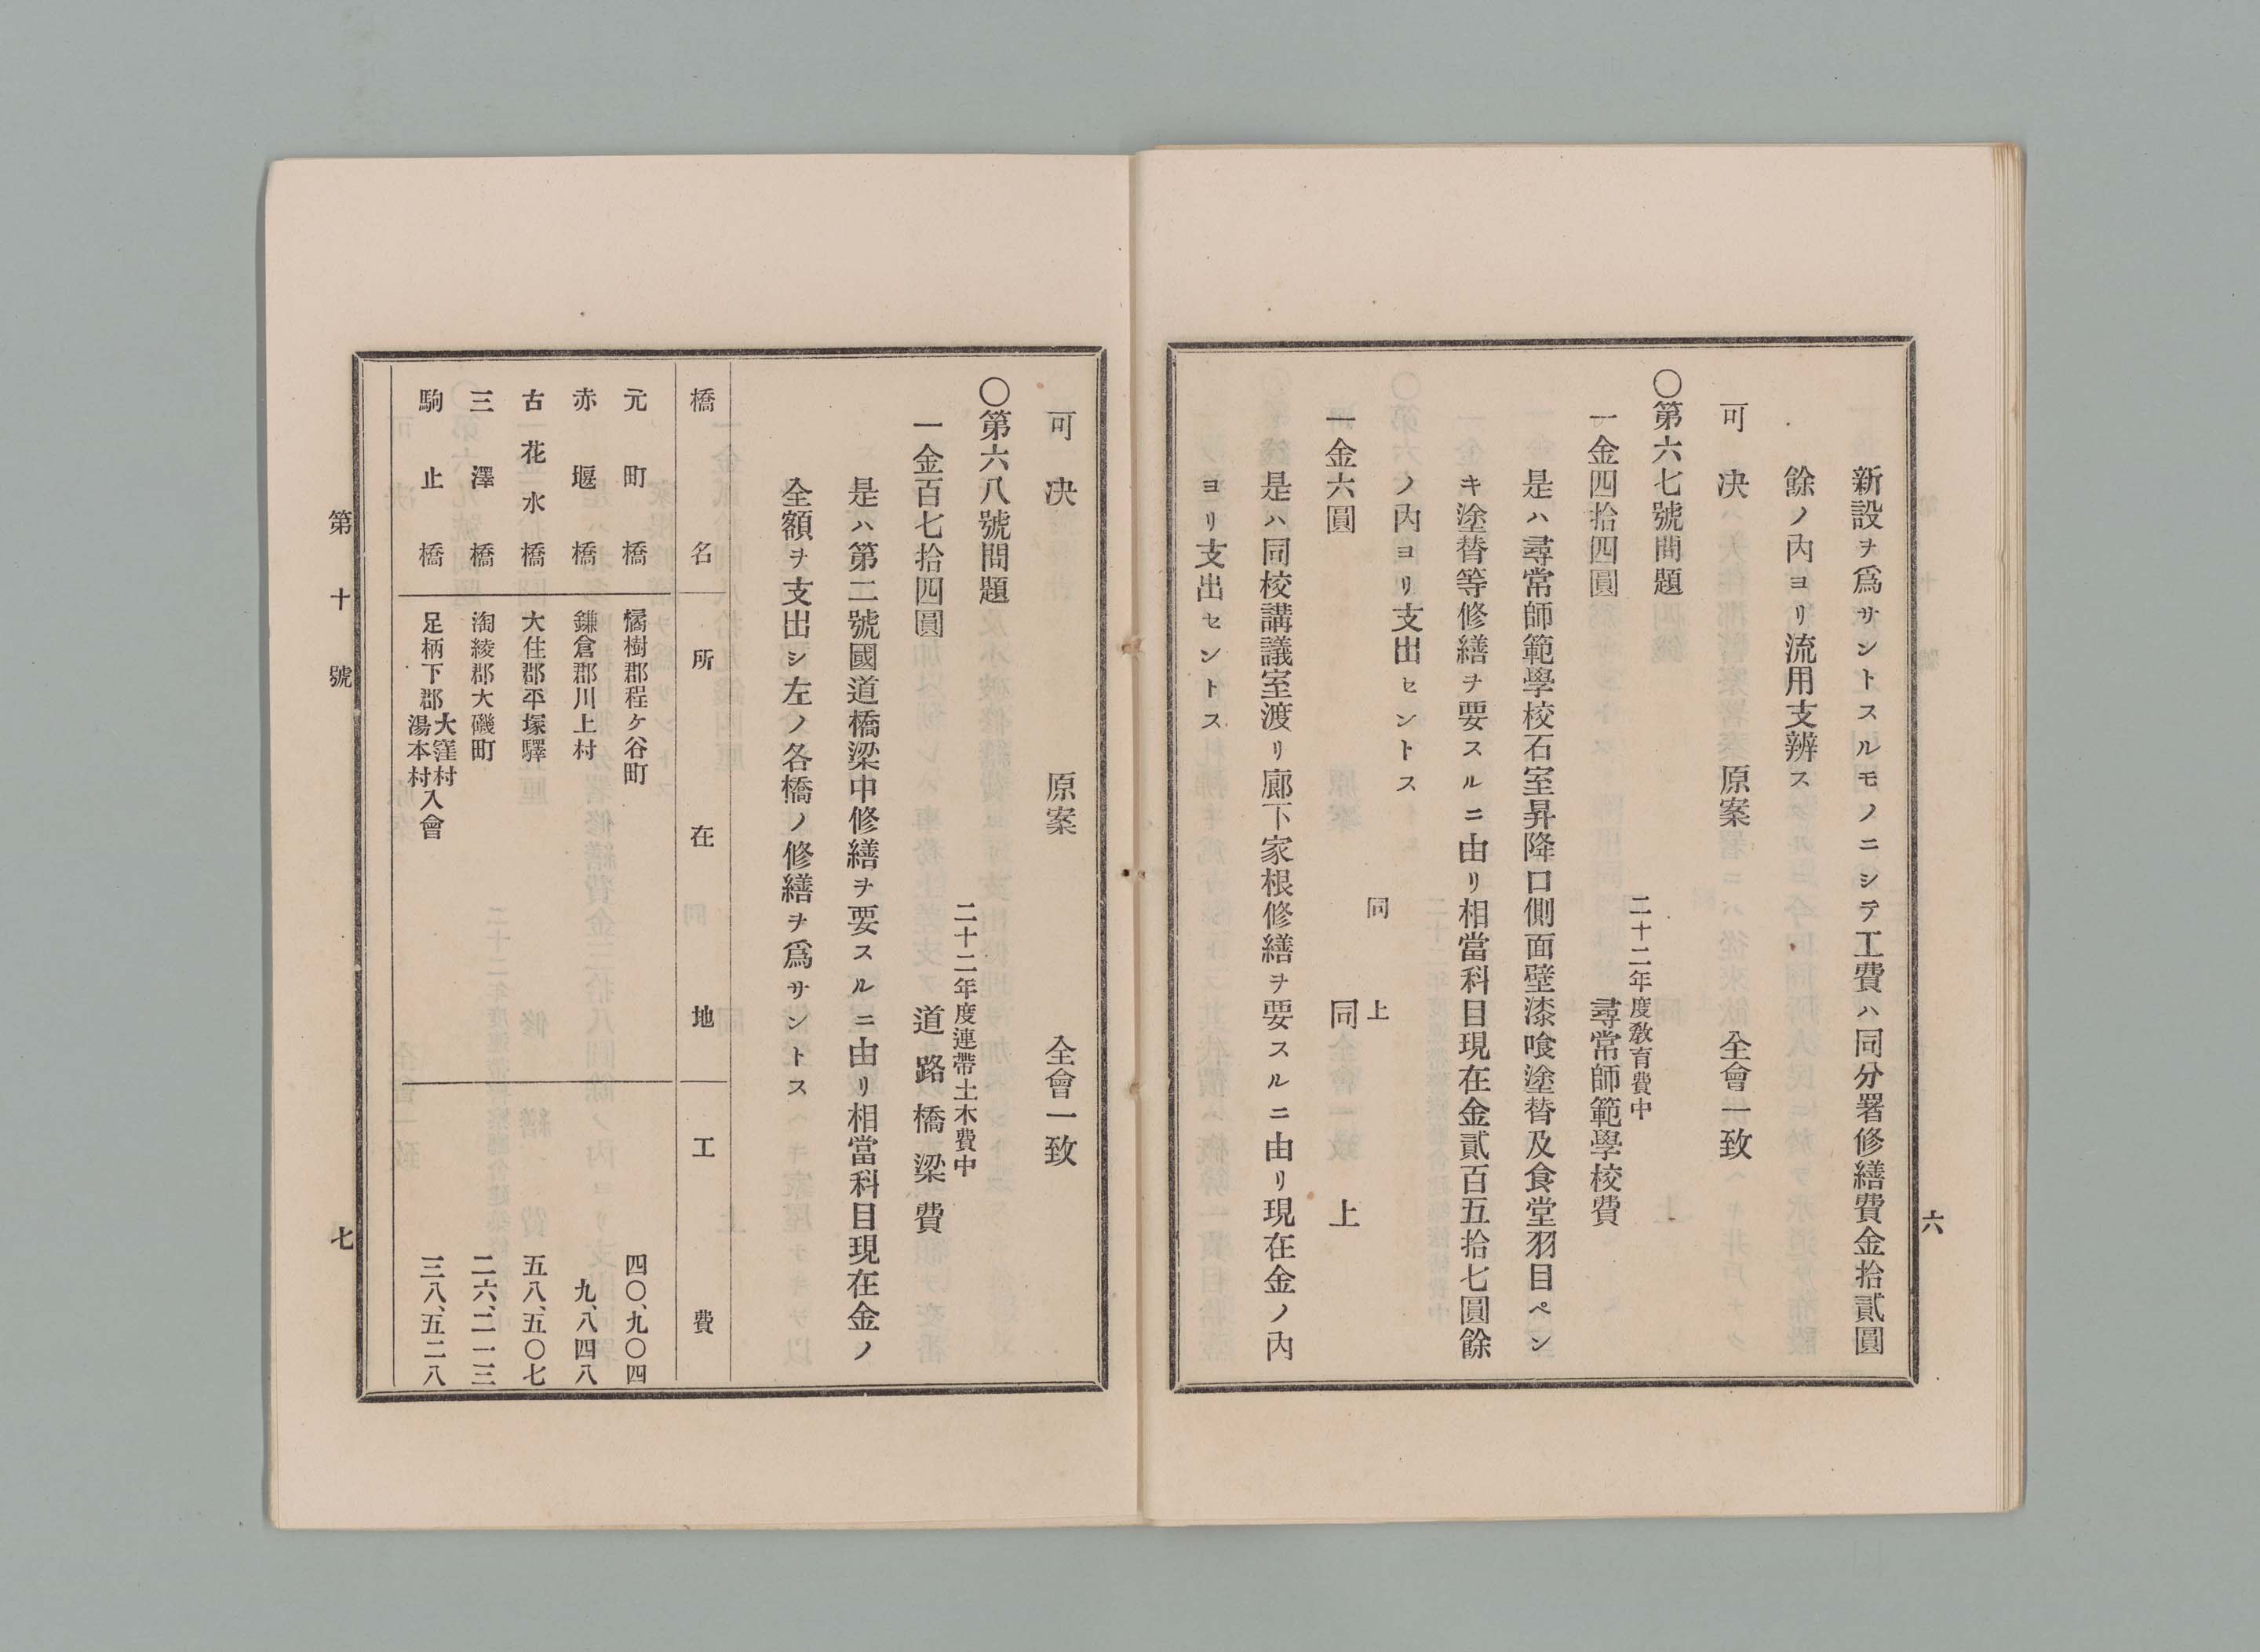 新設ヲ爲サントスルモノニシテ工費ハ同分署修繕費金拾貳圓
餘ノ內ヨリ流用支辨ス
可決 原案 全會一致
〇第六七號問題
二十二年度敎育費中
一金四拾四圓 尋常師範學校費
是ハ尋常師範學校石室昇降口側面壁漆喰塗替及食堂羽目ペン
キ塗替等修繕ヲ要スルニ由リ相當科目現在金貳百五拾七圓餘
ノ內ヨリ支出セントス
同上
一金六圓 同上
是ハ同校講議室渡リ廊下家根修繕ヲ要スルニ由リ現在金ノ內
ヨリ支出セントス
六
可決 原案 全會一致
〇第六八號問題
二十二年度連帶土木費中
一金百七拾四圓 道路橋梁費
是ハ第二號國道橋梁中修繕ヲ要スルニ由リ相當科目現在金ノ
全額ヲ支出シ左ノ各橋ノ修繕ヲ爲サントス
橋名 所在地 工費
元町橋 橘樹郡程ケ谷町 四〇、九〇四
赤堰橋 鎌倉郡川上村 九、八四八
古花水橋 大住郡平塚驛 五八、五〇七
三澤橋 淘綾郡大磯町 二六、二一三
駒止橋 足柄下郡大窪村湯本村入會 三八、五二八
第十號 七